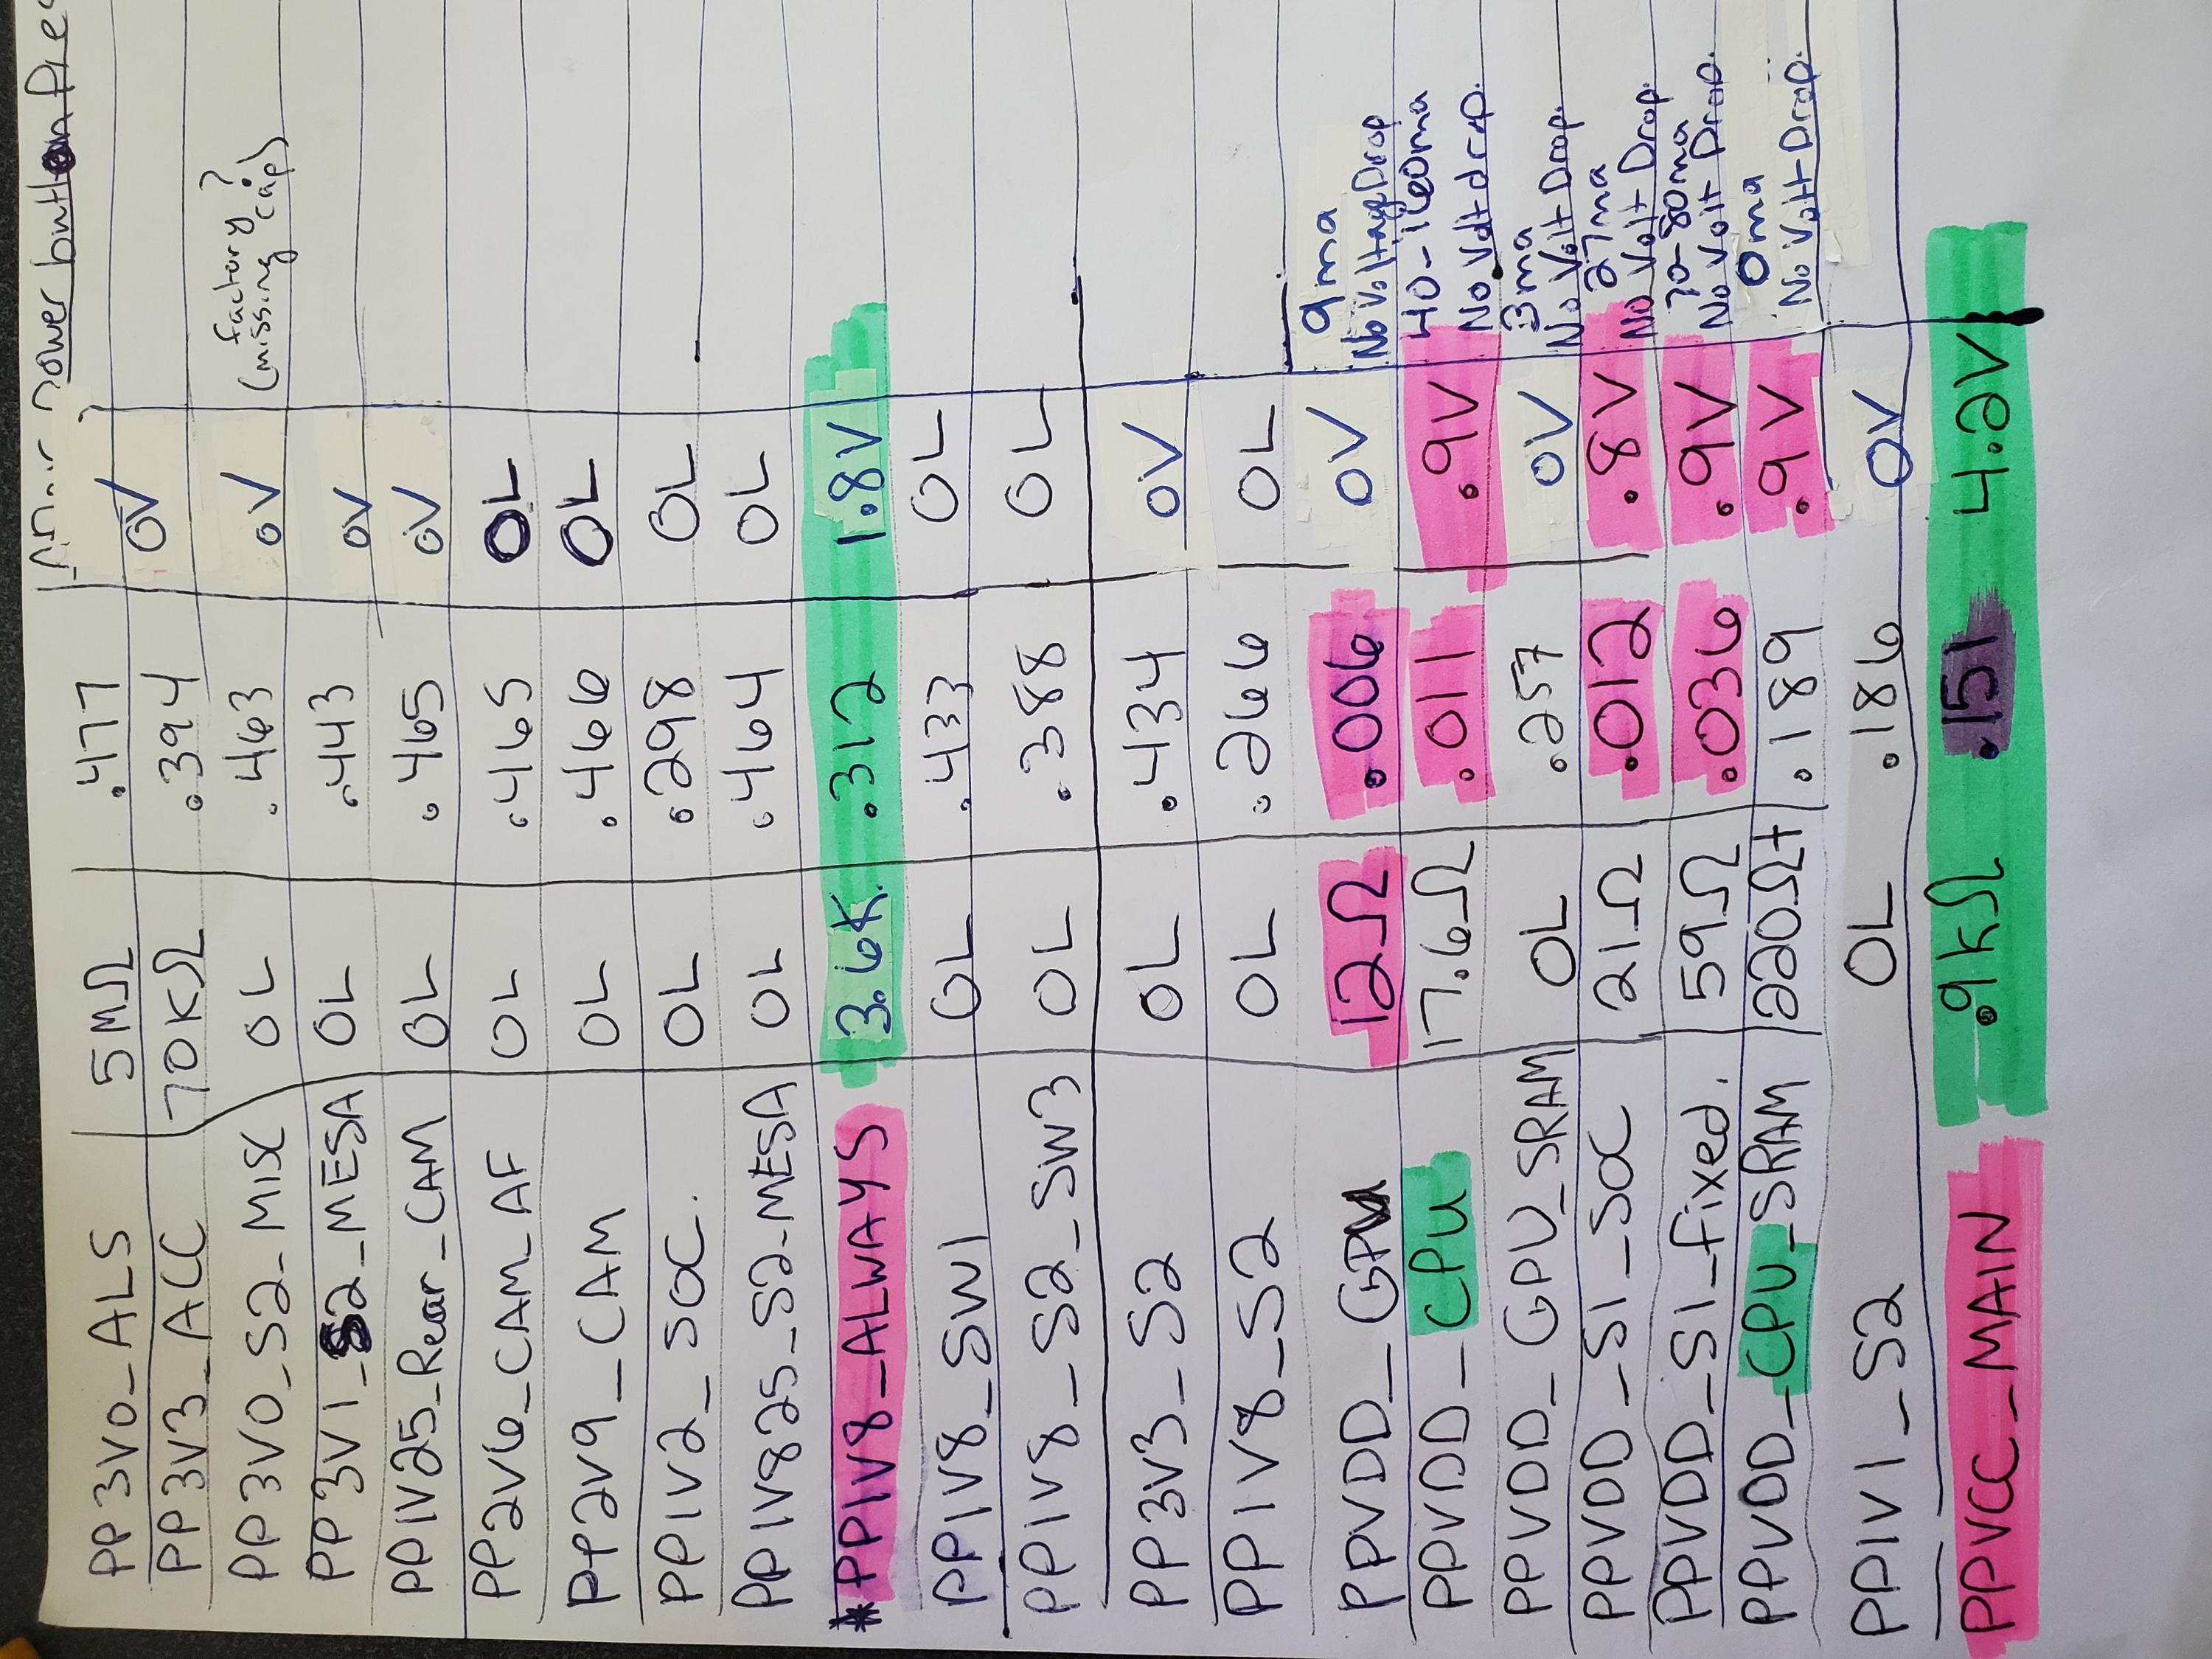 power button
PP3V0_ALS 5MΩ .477 0V
PP3V3_ACC 70KΩ .394
PP3V0_S2_MISC OL .463 0V factory? (missing cap)
PP3V1_S2_MESA OL .443 0V
PP1V25_Rear_CAM OL .465 0V
PP2V6_CAM_AF OL .465 OL
PP2V9_CAM OL .466 OL
PP1V2_SOC. OL .298 OL
PP1V825_S2-MESA OL .464 OL
*PP1V8_ALWAYS 3.6K. .312 1.8V
PP1V8_SW1 OL .433 OL
PP1V8_S2_SW3 OL .388 OL
PP3V3_S2 OL .434 0V
PP1V8_S2 OL .266 OL
PPVDD_GPU 12Ω .006 0V 9ma No Voltage Drop
PPVDD_CPU 17.6Ω .011 .9V 40-160ma No Volt drop.
PPVDD_GPU_SRAM OL .257 0V 3ma No Volt Drop.
PPVDD_S1_SOC 21Ω .012 .8V 27ma No Volt Drop.
PPVDD_S1_fixed. 59Ω .036 .9V 70-80ma No Volt Drop.
PPVDD_CPU_SRAM 220Ω+ .189 .9V 0ma No Volt Drop.
PP1V1_S2 OL .186 0V
PPVCC_MAIN .9KΩ .151 4.2V